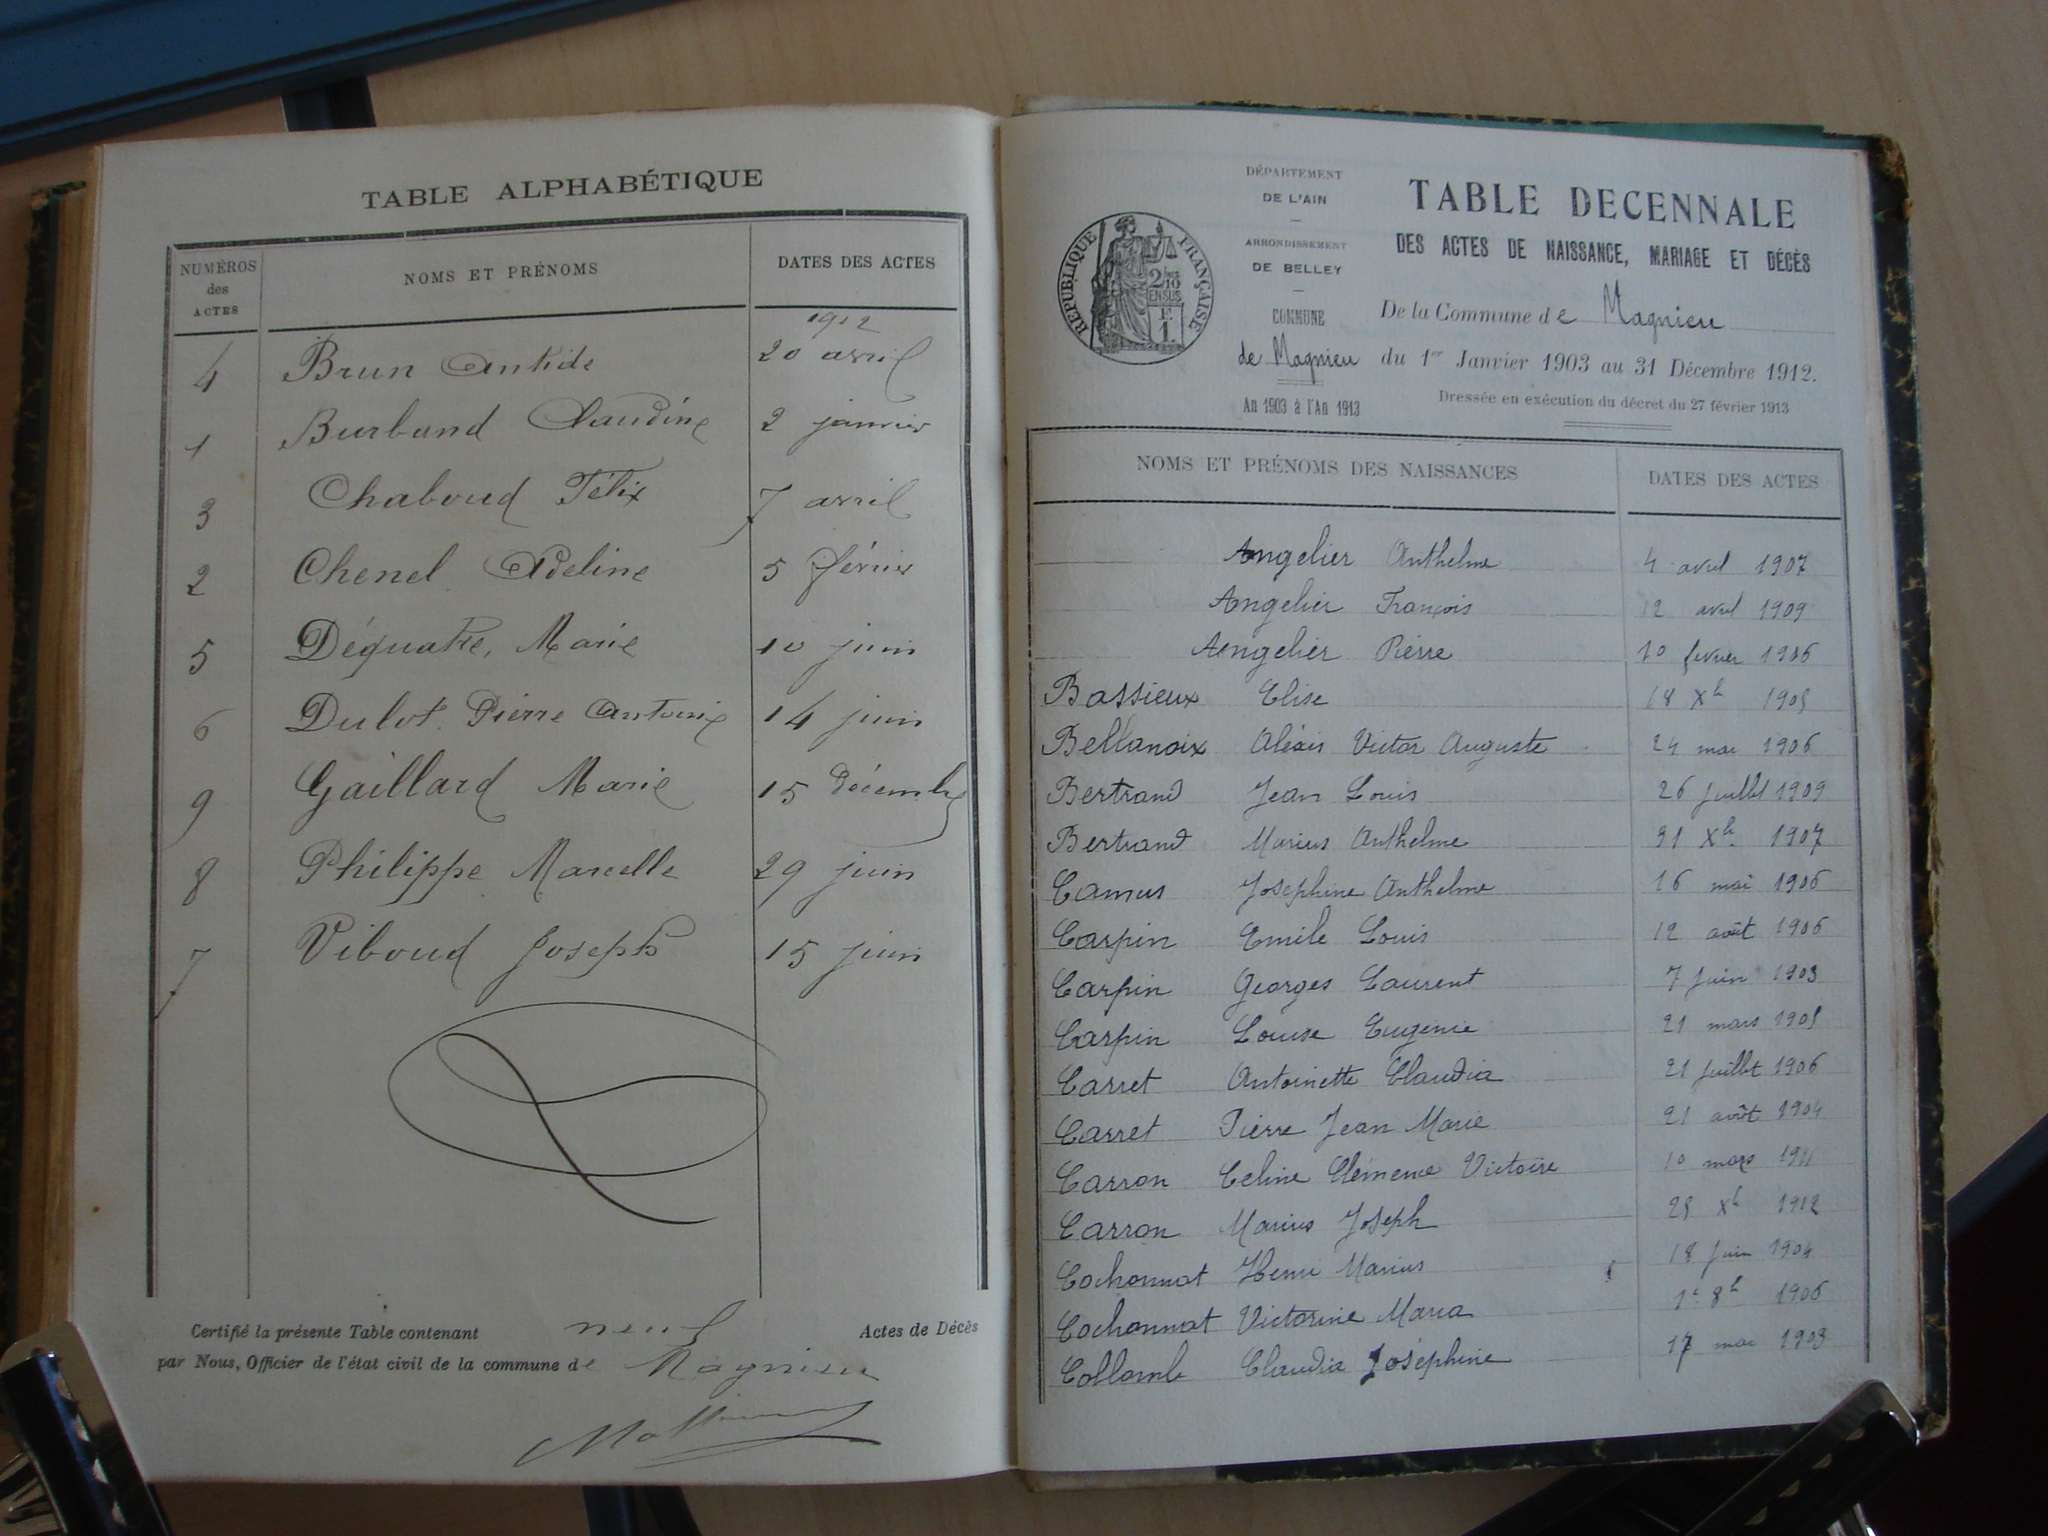 TABLE ALPHABÉTIQUE
NUMÉROS des ACTES NOMS ET PRÉNOMS DATES DES ACTES
1912
4 Brun Anthide 20 avril
1 Burband Claudine 2 janvier
3 Chaboud Félix 7 avril
2 Chenel Adeline 5 février
5 Déquatre, Marie 10 juin
6 Dulot Pierre Antoine 14 juin
9 Gaillard Marie 15 décembre
8 Philippe Marcelle 29 juin
7 Viboud Joseph 15 juin
Certifié la présente Table contenant neuf Actes de Décès
par Nous, Officier de l'état civil de la commune de Magnieu
RÉPUBLIQUE FRANÇAISE
2/10
EN SUS
E
1.
DÉPARTEMENT
DE L'AIN
ARRONDISSEMENT
DE BELLEY
COMMUNE
de Magnieu
An 1903 à l'An 1913
TABLE DECENNALE
DES ACTES DE NAISSANCE, MARIAGE ET DÉCÈS
De la Commune de Magnieu
du 1er Janvier 1903 au 31 Décembre 1912.
Dressée en exécution du décret du 27 février 1913
NOMS ET PRÉNOMS DES NAISSANCES DATES DES ACTES
Angelier Anthelme 4 avril 1907
Angelier François 12 avril 1909
Angelier Pierre 10 fevrier 1906
Bassieux Elise 18 Xb 1905
Bellanoix Aléxis Victor Auguste 24 mai 1906
Bertrand Jean Louis 26 juillet 1909
Bertrand Marius Anthelme 31 Xb. 1907
Camus Josephine Anthelme 16 mai 1906
Carpin Emile Louis 12 août 1906
Carpin Georges Laurent 7 juin 1903
Carpin Louise Eugenie 21 mars 1905
Carret Antoinette Claudia 21 juillet 1906
Carret Pierre Jean Marie 21 août 1904
Carron Celine Clémence Victoire 10 mars 1911
Carron Marius Joseph 28 Xb 1912
Cochonnat Henri Marius 18 juin 1904
Cochonnat Victorine Maria 1er 8b 1906
Collomb Claudia Joséphine 17 mai 1903